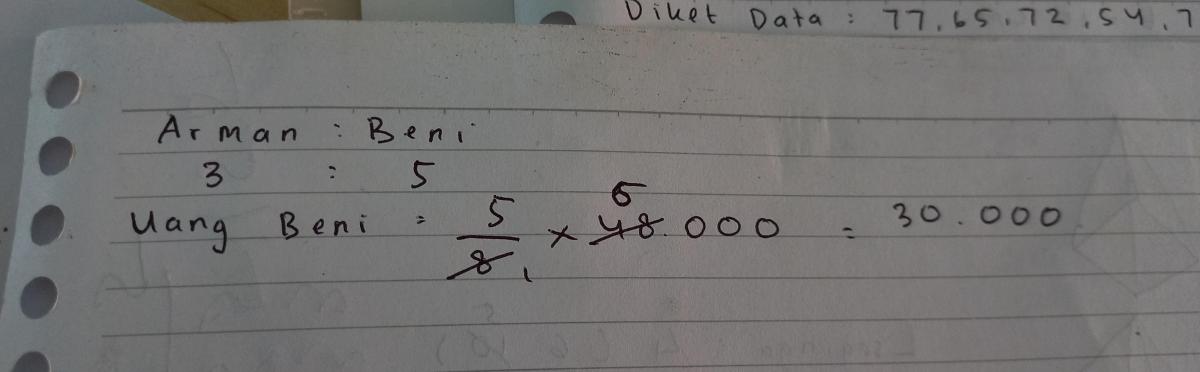 Diket Data : 77, 65, 72, 54, 7
Arman : Beni
3 : 5
Uang Beni = 5/8 1 × 48.000 6 = 30.000